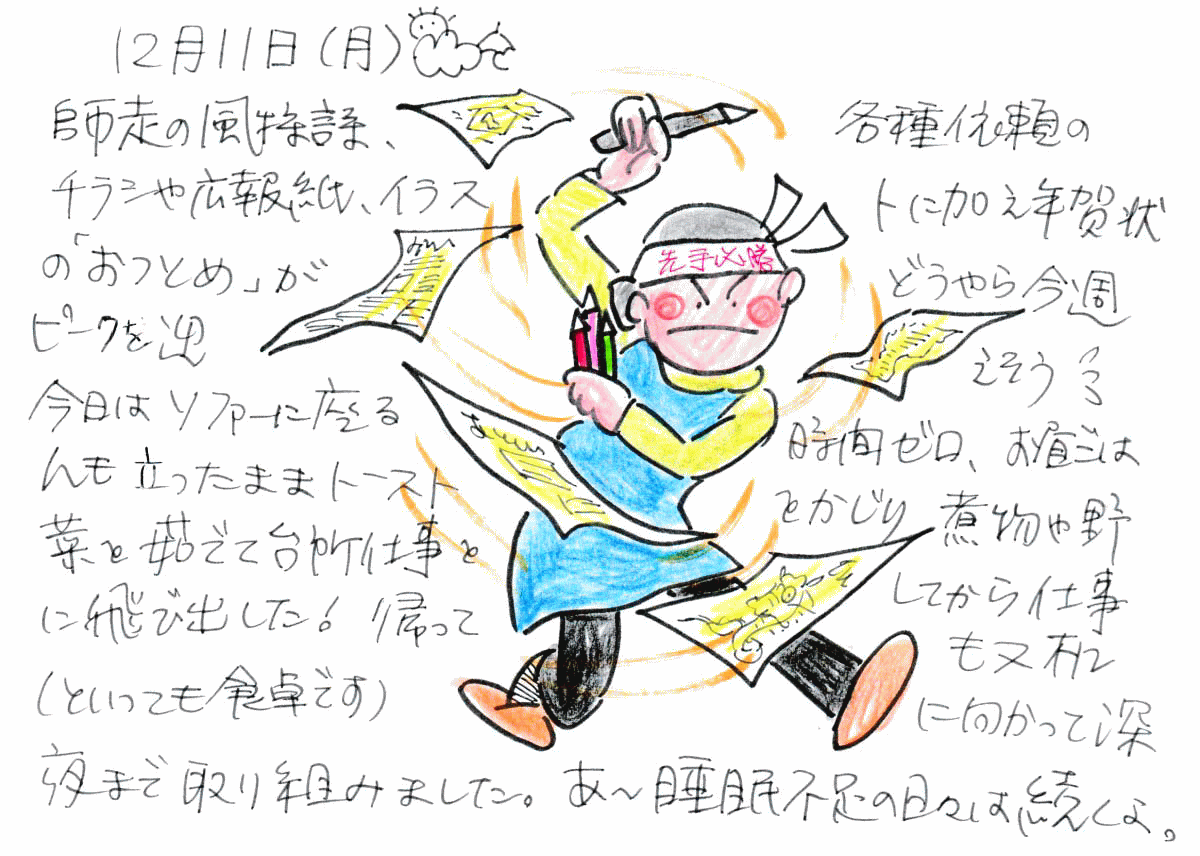 12月11日(月)
師走の風物詩、 各種依頼の
チラシや広報紙、イラス トに加え年賀状
の「おつとめ」が どうやら今週
ピークを迎 えそう
今日はソファーに座る 時間ゼロ、お昼ごは
んも立ったままトースト をかじり 煮物や野
菜を茹でて台所仕事を してから仕事
に飛び出した! 帰って も又机
(といっても食卓です) に向かって深
夜まで取り組みました。あ〜睡眠不足の日々は続くよ。
先手必勝